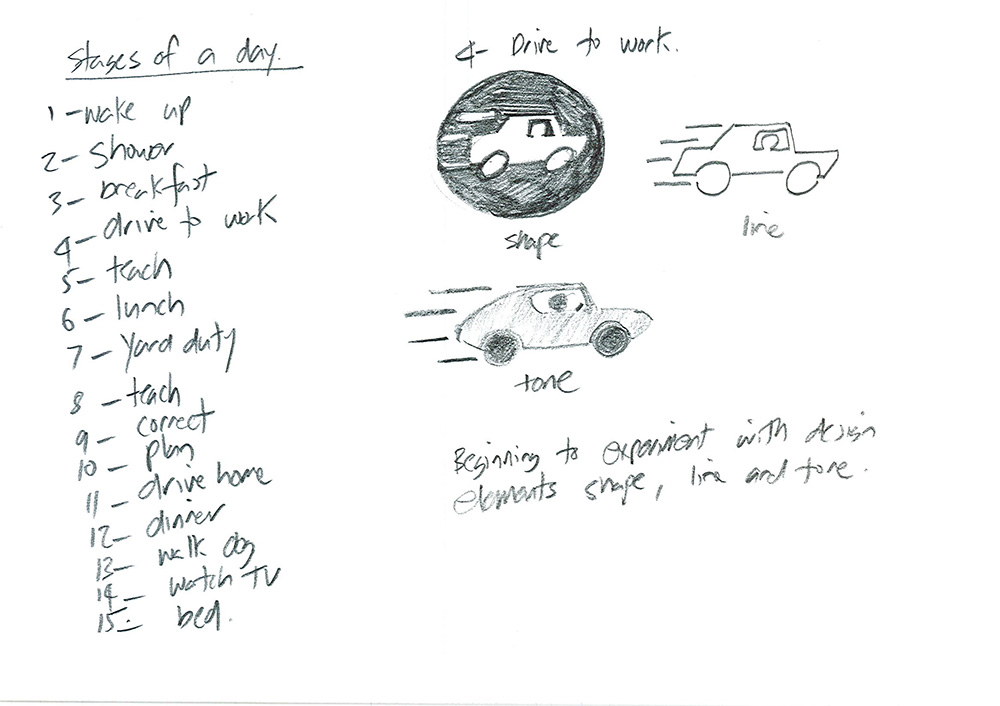 Stages of a day.
1 - wake up
2 - shower
3 - breakfast
4 - drive to work
5 - teach
6 - lunch
7 - Yard duty
8 - teach
9 - correct
10 - plan
11 - drive home
12 - dinner
13 - walk dog
14 - watch TV
15 - bed.
4 - Drive to work.
shape
line
tone
Beginning to experiment with design
elements shape, line and tone.